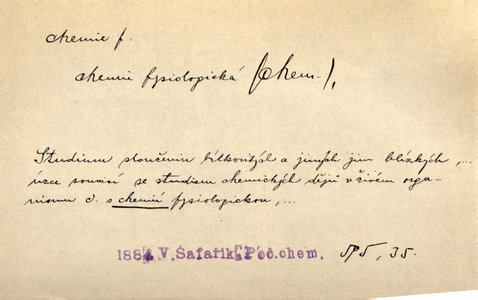 chemie f.
chemie fysiologická (chem.),
Studium sloučenin bílkovitých a jiných jim blízkých, ...
úzce souvisí se studiem chemických dějů v živém orga-
nismu č. s chemií fysiologickou, ...
188 V. Šafařík, Poč. chem. 35.